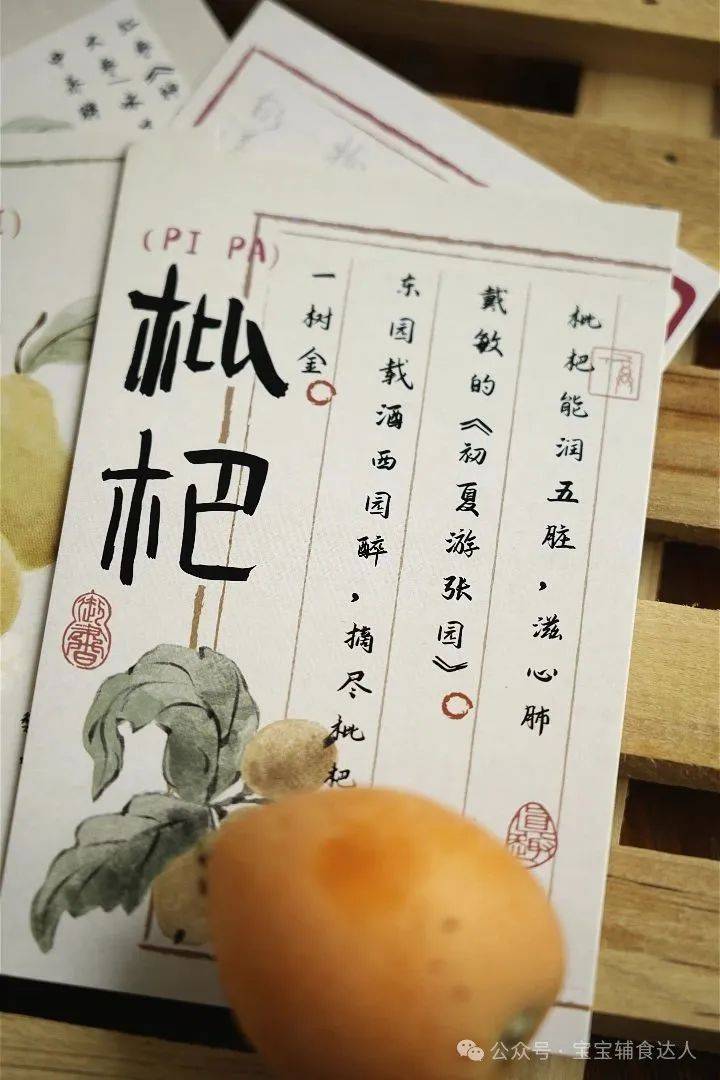 (PI PA)
枇杷
枇杷能润五脏，滋心肺
戴敏的《初夏游张园》。
东园载酒西园醉，摘尽枇杷
一树金。
公众号 · 宝宝辅食达人